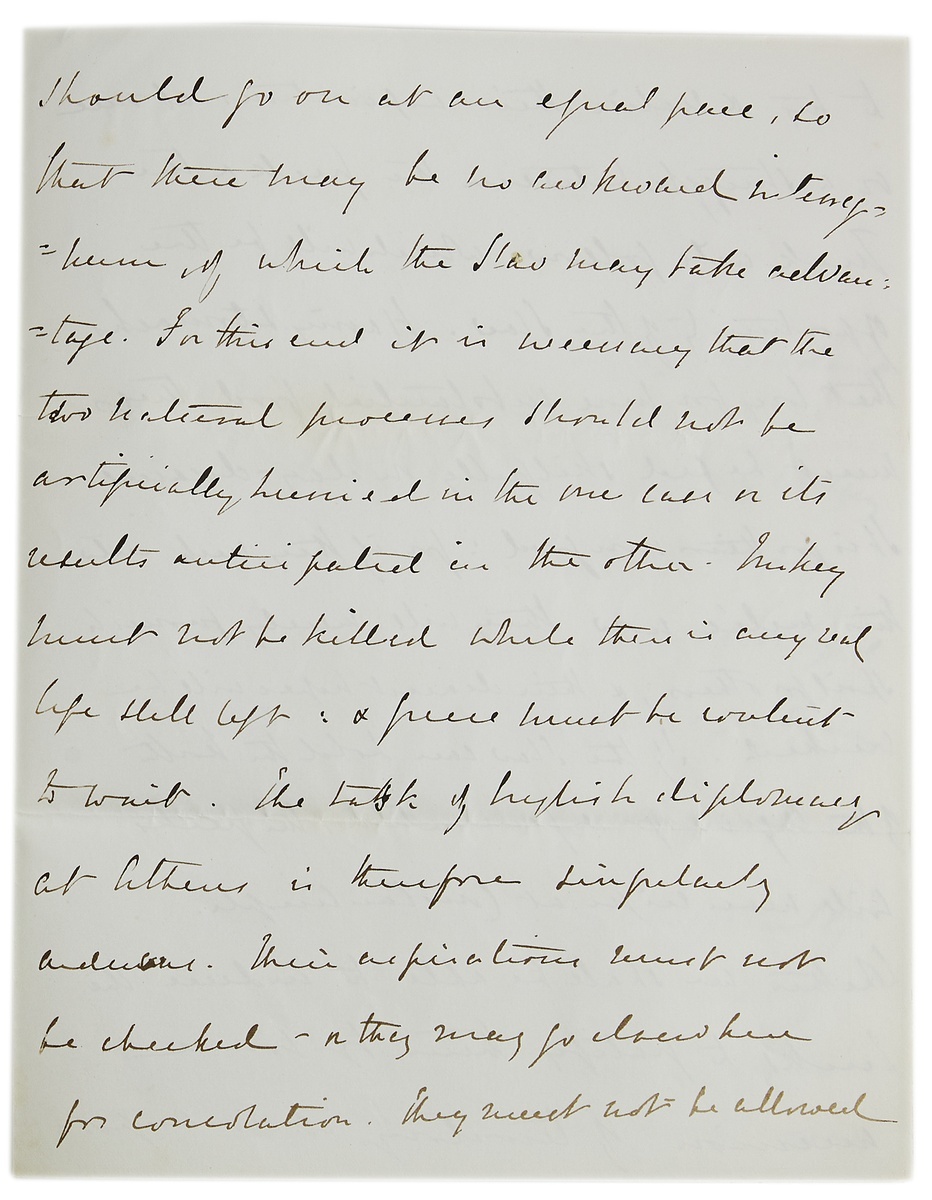 should go on at an equal pace, so
that there may be no awkward interreg=
=num, of which the Slav may take advan=
=tage. For this end it is necessary that the
two natural processes should not be
artificially hurried in the one case or its
results anticipated in the other. Turkey
must not be killed while there is any real
life still left : & Greece must be content
to wait. The task of English diplomacy
at Athens is therefore singularly
arduous. Their aspirations must not
be checked – or they may go elsewhere
for consolation. They must not be allowed